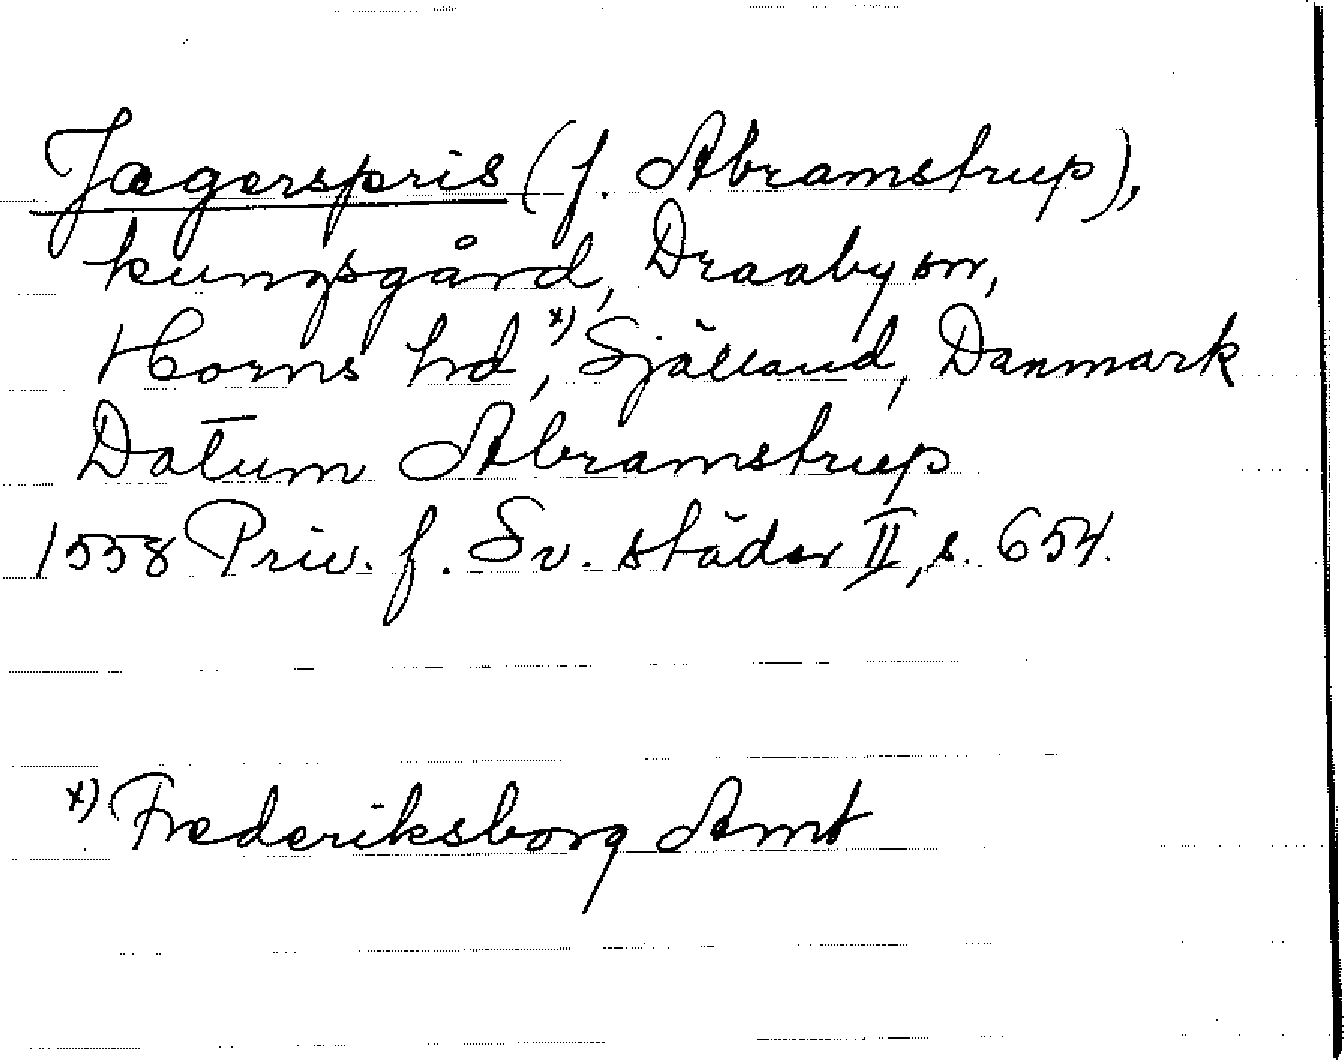 Jægerspris (f. Abramstrup),
kungsgård, Draaby sn,
Horns hd,*) Själland, Danmark
Datum Abramstrup
1558 Priv. f. Sv. städer II, s. 654.
*) Frederiksborg Amt